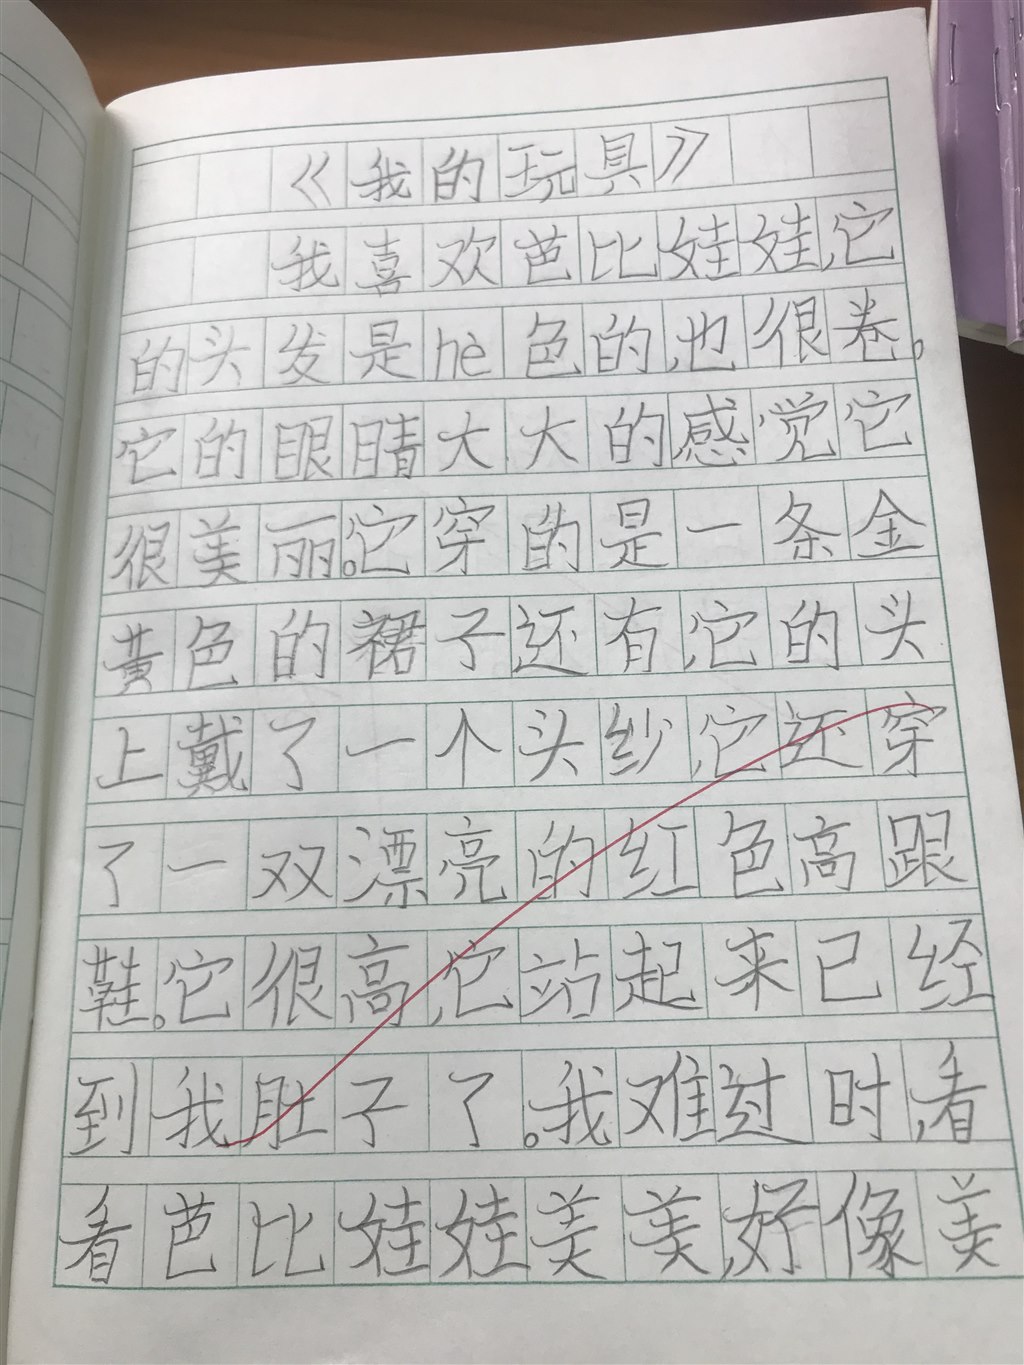 《我的玩具》
我喜欢芭比娃娃,它
的头发是hè色的,也很卷。
它的眼睛大大的感觉它
很美丽。它穿的是一条金
黄色的裙子还有,它的头
上戴了一个头纱,它还穿
了一双漂亮的红色高跟
鞋。它很高,它站起来已经
到我肚子了。我难过时,看
看芭比娃娃美美,好像美